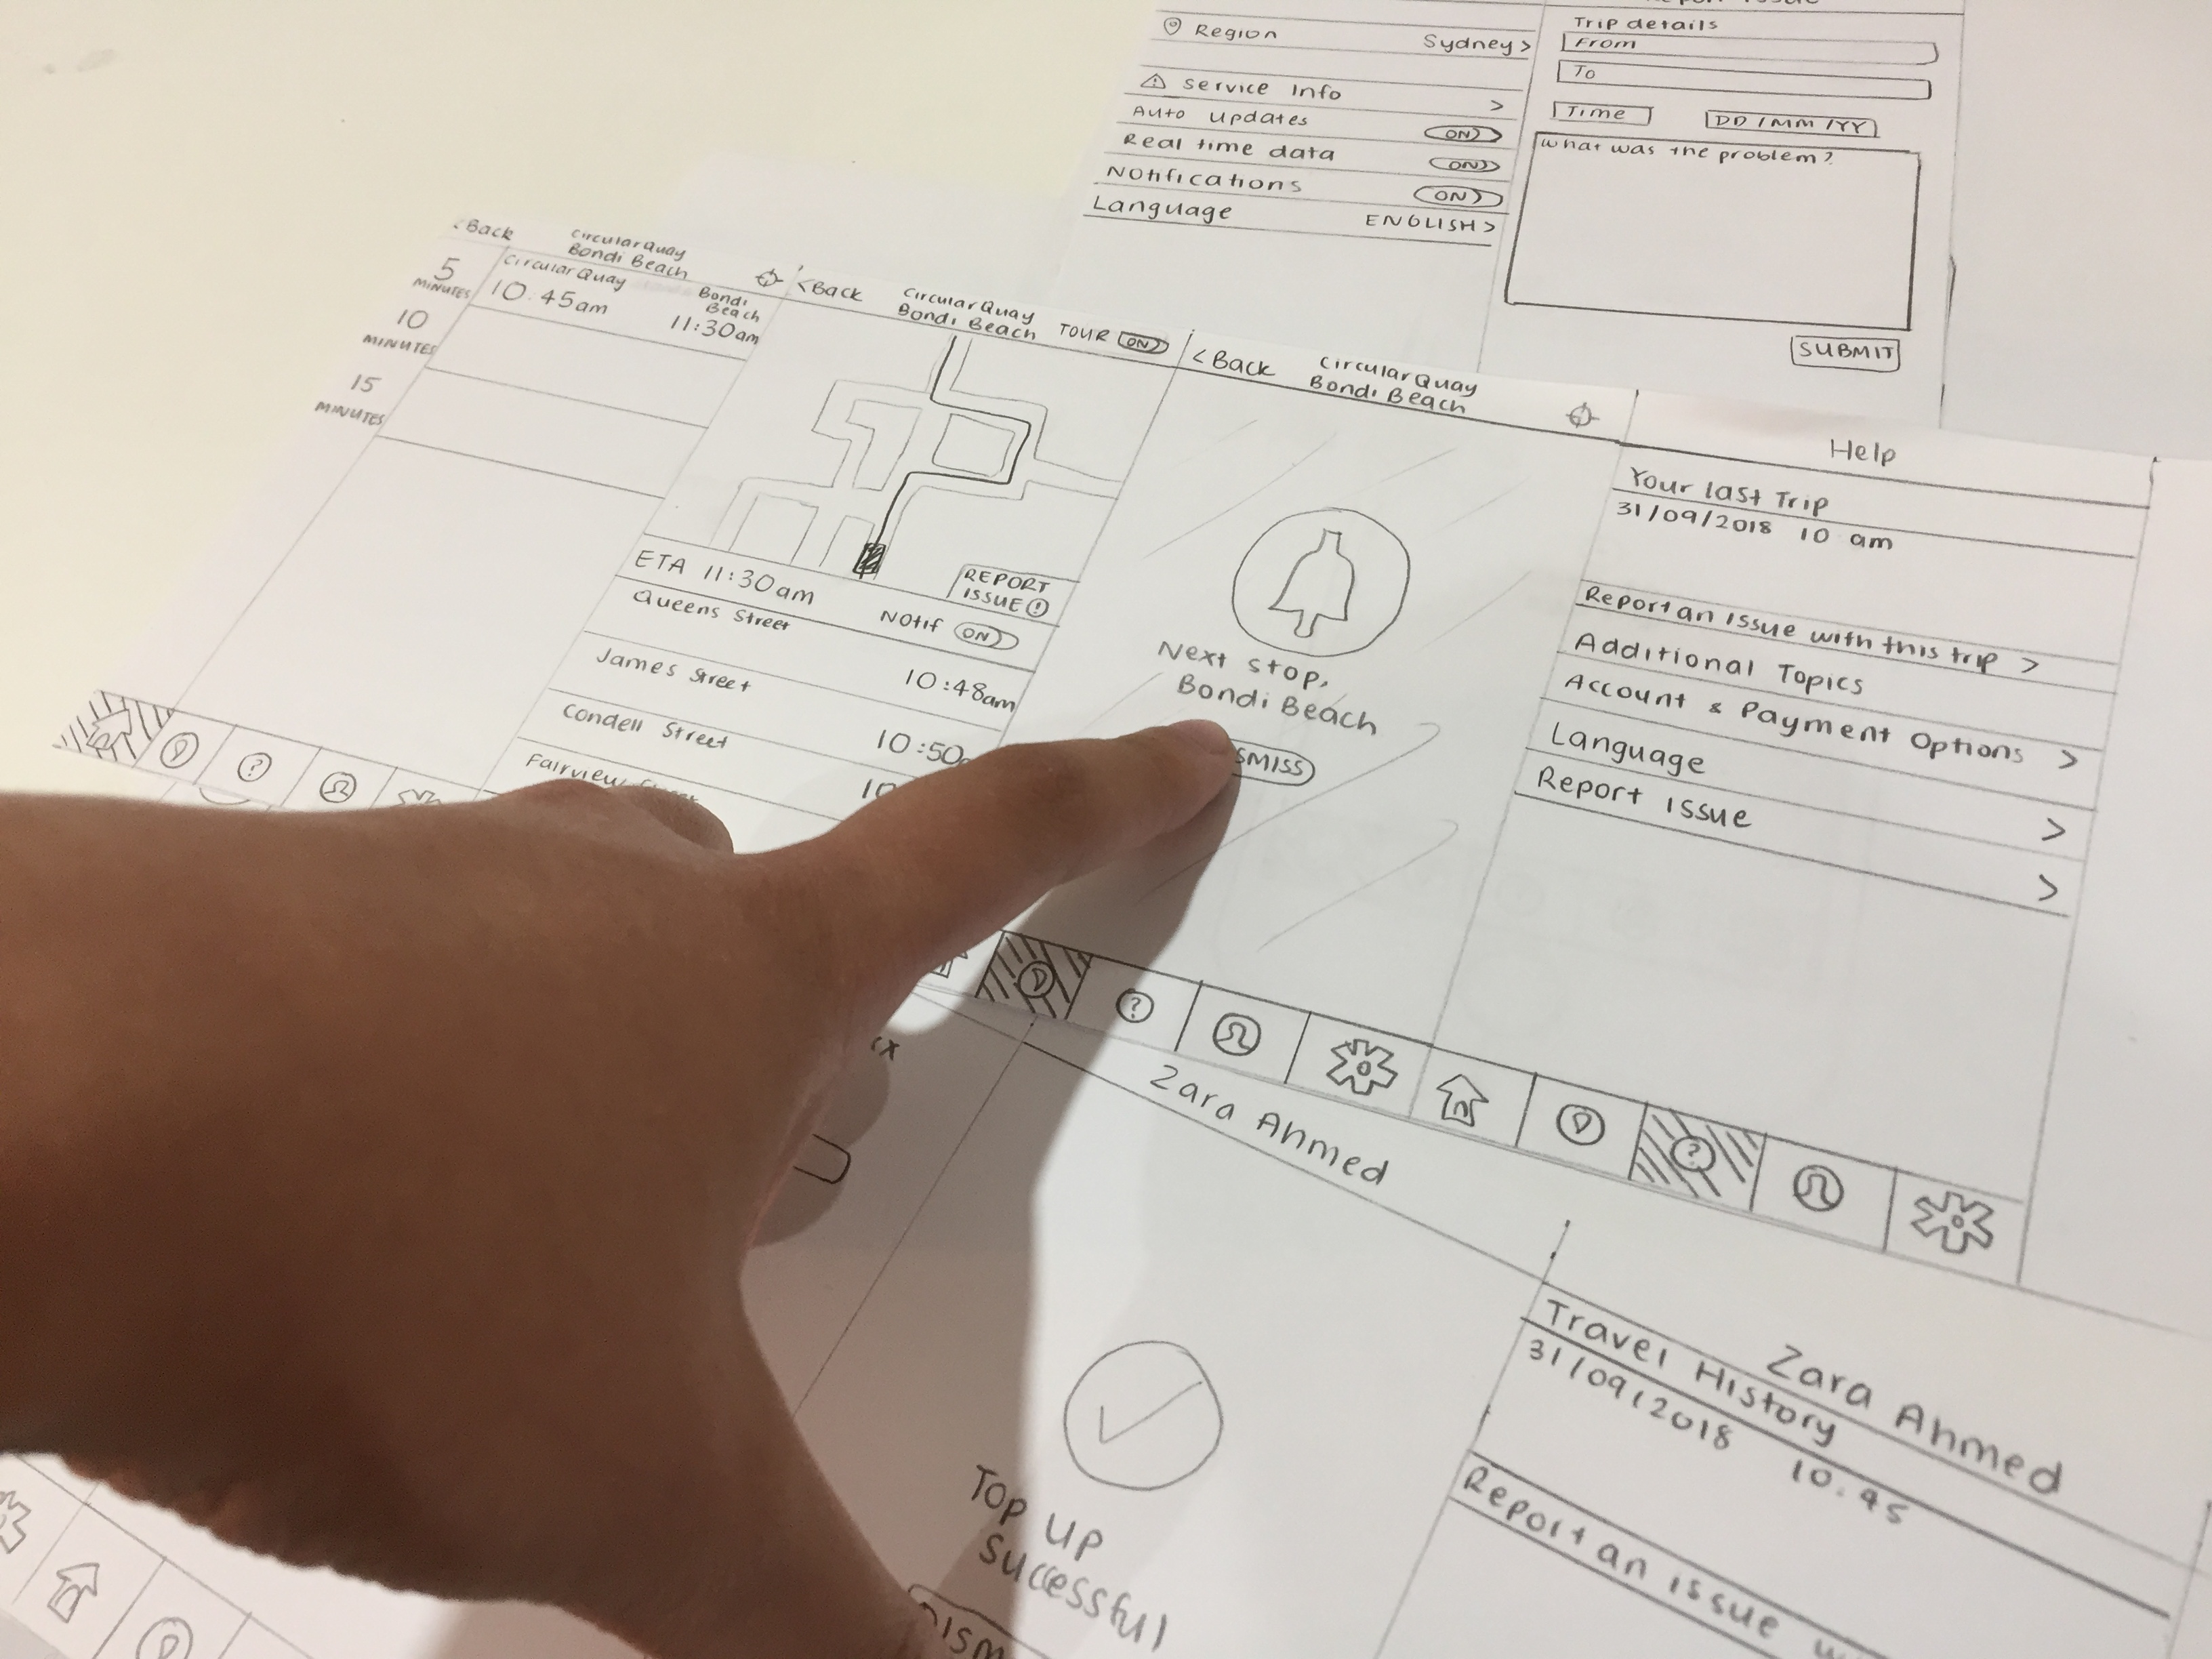 Region Sydney >
Service Info >
Auto updates ON
Real time data ON
Notifications ON
Language ENGLISH >
Trip details
From
To
Time DD/MM/YY
What was the problem?
SUBMIT
< Back
Circular Quay
Bondi Beach
5
MINUTES
10
MINUTES
15
MINUTES
Circular Quay
10.45am
Bondi
Beach
11:30am
< Back
Circular Quay
Bondi Beach
TOUR ON
ETA 11:30am
REPORT
ISSUE !
Notif ON
Queens Street
10:48am
James Street
10:50
Condell Street
10
Fairview Street
< Back
Circular Quay
Bondi Beach
Next stop,
Bondi Beach
SMISS
?
Help
Your last Trip
31/09/2018 10 am
Report an issue with this trip >
Additional Topics
Account & Payment Options >
Language >
Report Issue >
?
?
Zara Ahmed
Top up
successful
DISM
Zara Ahmed
Travel History
31/09/2018 10.45
Report an issue w